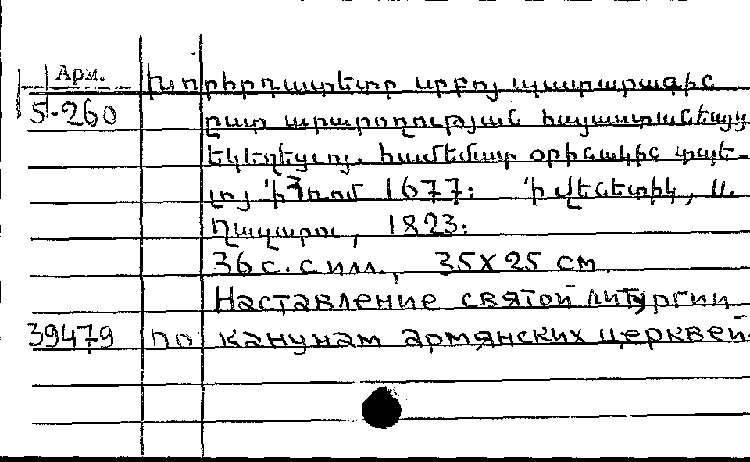 Арм.
5-260
Խորհրդատետր սրբոյ պատարագիս
ըստ արարողութեան հայաստանեայց
եկեղեցւոյ. համեմատ օրինակին տպե-
լոյ 'ի Հռոմ 1677: 'ի վենետիկ, ս.
Ղազարու, 1823:
36 с. с илл., 35x25 см.
Наставление святой литургии
39479 по канунам армянских церквей